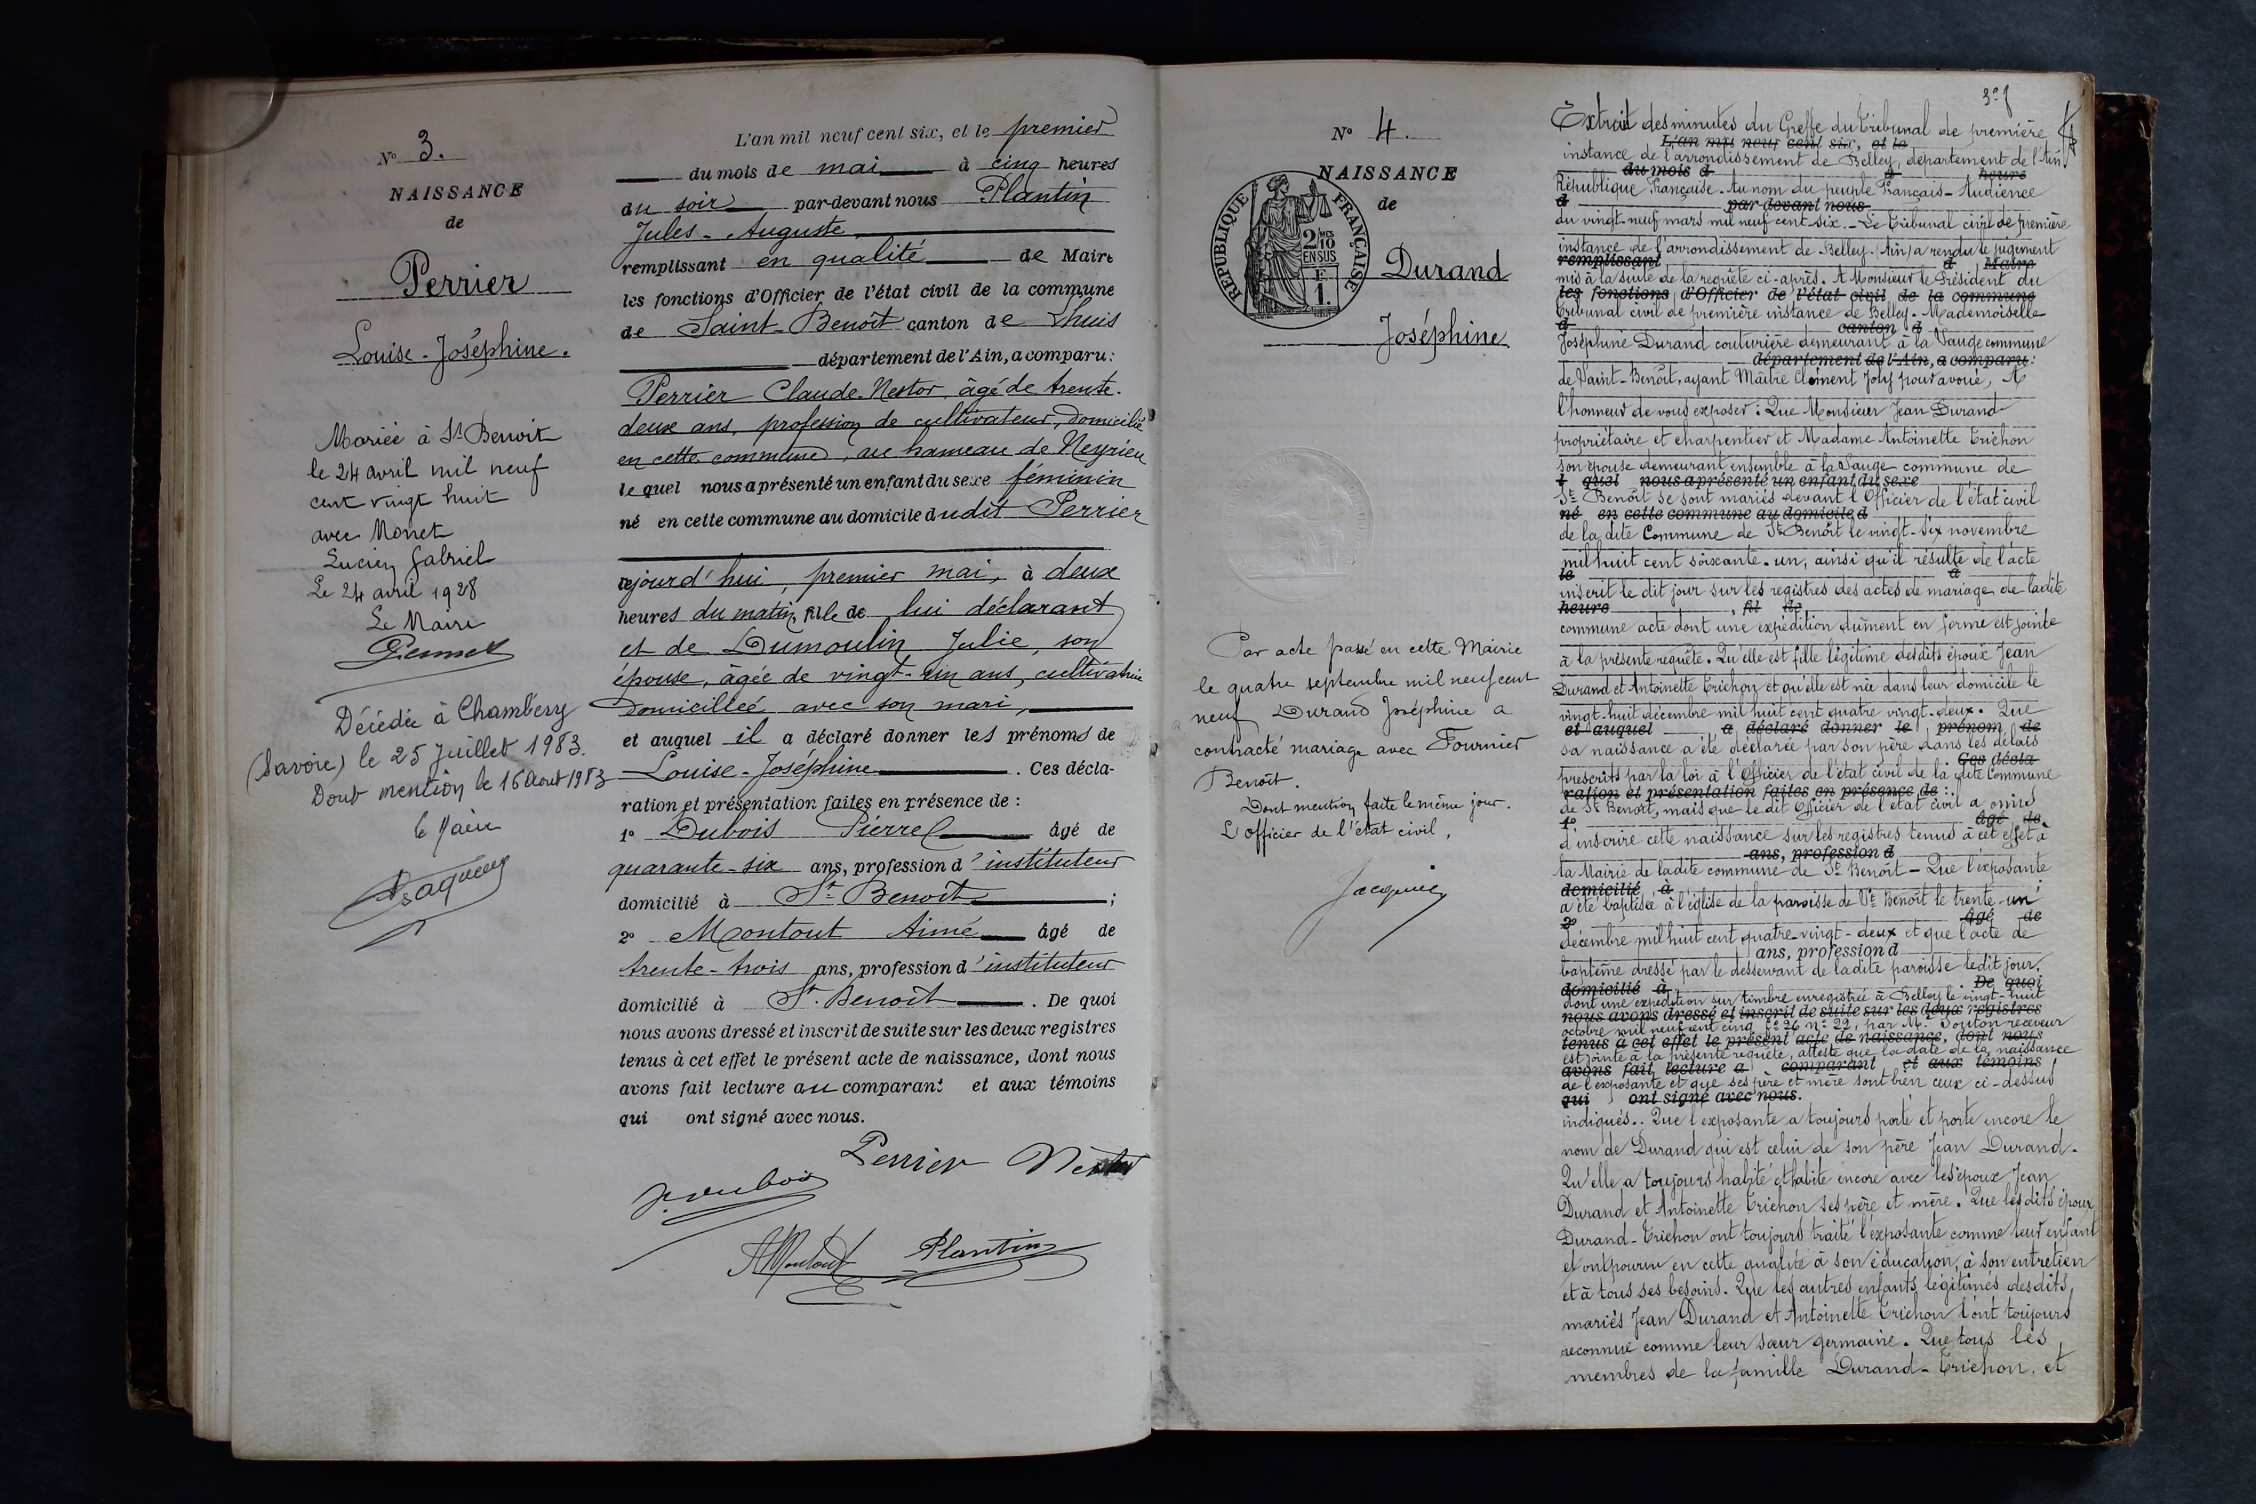 N° 3.
NAISSANCE
de
Perrier
Louise-Joséphine.
Mariée à St Benoit
le 24 avril mil neuf
cent vingt huit
avec Monet
Lucien Gabriel
Le 24 avril 1928
Le Maire
Décédée à Chambéry
(Savoie) le 25 Juillet 1983.
Dont mention le 16 Aout 1983
le Maire
L'an mil neuf cent six, et le premier
du mois de mai à cinq heures
du soir par-devant nous Plantin
Jules-Auguste
remplissant en qualité de Maire
les fonctions d'Officier de l'état civil de la commune
de Saint-Benoît canton de Lhuis
département de l'Ain, a comparu:
Perrier Claude-Nestor, âgé de trente-
deux ans, profession de cultivateur, domicilié
en cette commune, au hameau de Neyrieu
lequel nous a présenté un enfant du sexe féminin
né en cette commune au domicile dudit Perrier
aujourd'hui, premier mai, à deux
heures du matin, fille de lui déclarant
et de Dumoulin Julie, son
épouse, âgée de vingt-un ans, cultivatrice
domicilléé avec son mari,
et auquel il a déclaré donner les prénoms de
Louise-Joséphine. Ces décla-
ration et présentation faites en présence de :
1° Dubois Pierre âgé de
quarante-six ans, profession d'instituteur
domicilié à St Benoît ;
2° Montout Aimé âgé de
trente-trois ans, profession d'instituteur
domicilié à St. Benoît. De quoi
nous avons dressé et inscrit de suite sur les deux registres
tenus à cet effet le présent acte de naissance, dont nous
avons fait lecture au comparant et aux témoins
qui ont signé avec nous.
Perrier Nestor
P. Dubois
AMontout Plantin
N° 4.
NAISSANCE
de
Durand
Joséphine
RÉPUBLIQUE FRANÇAISE
2/10 MES
EN SUS
F.
1.
Par acte passé en cette Mairie
le quatre septembre mil neuf cent
neuf Durand Joséphine a
contracté mariage avec Fournier
Benoît.
Dont mention faite le même jour.
L'officier de l'état civil,
Extrait des minutes du Greffe du Tribunal de première
L'an mil neuf cent six, et le
instance de l'arrondissement de Belley, département de l'Ain
du mois d à heure
République Française. Au nom du peuple Français - Audience
d par devant nous
du vingt-neuf mars mil neuf cent six. - Le Tribunal civil de première
instance de l'arrondissement de Belley (Ain) a rendu le jugement
remplissant d Maire
mis à la suite de la requête ci-après. A Monsieur le Président du
les fonctions d'Officier de l'état civil de la commune
Tribunal civil de première instance de Belley. Mademoiselle
d canton d
Joséphine Durand couturière demeurant à la Sauge commune
département de l'Ain, a comparu:
de Saint-Benoît, ayant Maître Clément Joly pour avoué, A
l'honneur de vous exposer : Que Monsieur Jean Durand
propriétaire et charpentier et Madame Antoinette Trichon
son épouse demeurant ensemble à la Sauge commune de
l quel nous a présenté un enfant du sexe
St Benoît se sont mariés devant l'Officier de l'état civil
né en cette commune au domicile d
de la dite Commune de St Benoît le vingt-six novembre
mil huit cent soixante-un, ainsi qu'il résulte de l'acte
le à
inscrit le dit jour sur les registres des actes de mariage de ladite
heure, fil de
commune acte dont une expédition dûment en forme est jointe
à la présente requête. Qu'elle est fille légitime desdits époux Jean
Durand et Antoinette Trichon et qu'elle est née dans leur domicile le
vingt-huit décembre mil huit cent quatre vingt-deux. Que
et auquel a déclaré donner le prénom de
sa naissance a été déclarée par son père dans les délais
Ces décla-
prescrits par la loi à l'Officier de l'état civil de la dite Commune
ration et présentation faites en présence de :
de St Benoît, mais que le dit Officier de l'état civil a omis
1° âgé de
d'inscrire cette naissance sur les registres tenus à cet effet à
ans, profession d
la Mairie de ladite commune de St Benoît - Que l'exposante
domicilié à ;
a été baptisée à l'église de la paroisse de St Benoît le trente-un
2° âgé de
décembre mil huit cent quatre-vingt-deux et que l'acte de
ans, profession d
baptême dressé par le desservant de ladite paroisse ledit jour,
domicilié à . De quoi
dont une expédition sur timbre enregistrée à Belley le vingt-huit
nous avons dressé et inscrit de suite sur les deux registres
octobre mil neuf cent cinq f° 26 n° 22, par M. Touton receveur
tenus à cet effet le présent acte de naissance, dont nous
est jointe à la présente requête, atteste que la date de la naissance
avons fait lecture a comparant et aux témoins
de l'exposante et que ses père et mère sont bien ceux ci-dessus
qui ont signé avec nous.
indiqués. Que l'exposante a toujours porté et porte encore le
nom de Durand qui est celui de son père Jean Durand.
Qu'elle a toujours habité et habite encore avec les époux Jean
Durand et Antoinette Trichon ses père et mère. Que lesdits époux
Durand-Trichon ont toujours traité l'exposante comme leur enfant
et ont pourvu en cette qualité à son éducation, à son entretien
et à tous ses besoins. Que les autres enfants légitimes desdits
mariés Jean Durand et Antoinette Trichon l'ont toujours
reconnue comme leur sœur germaine. Que tous les
membres de la famille Durand-Trichon, et